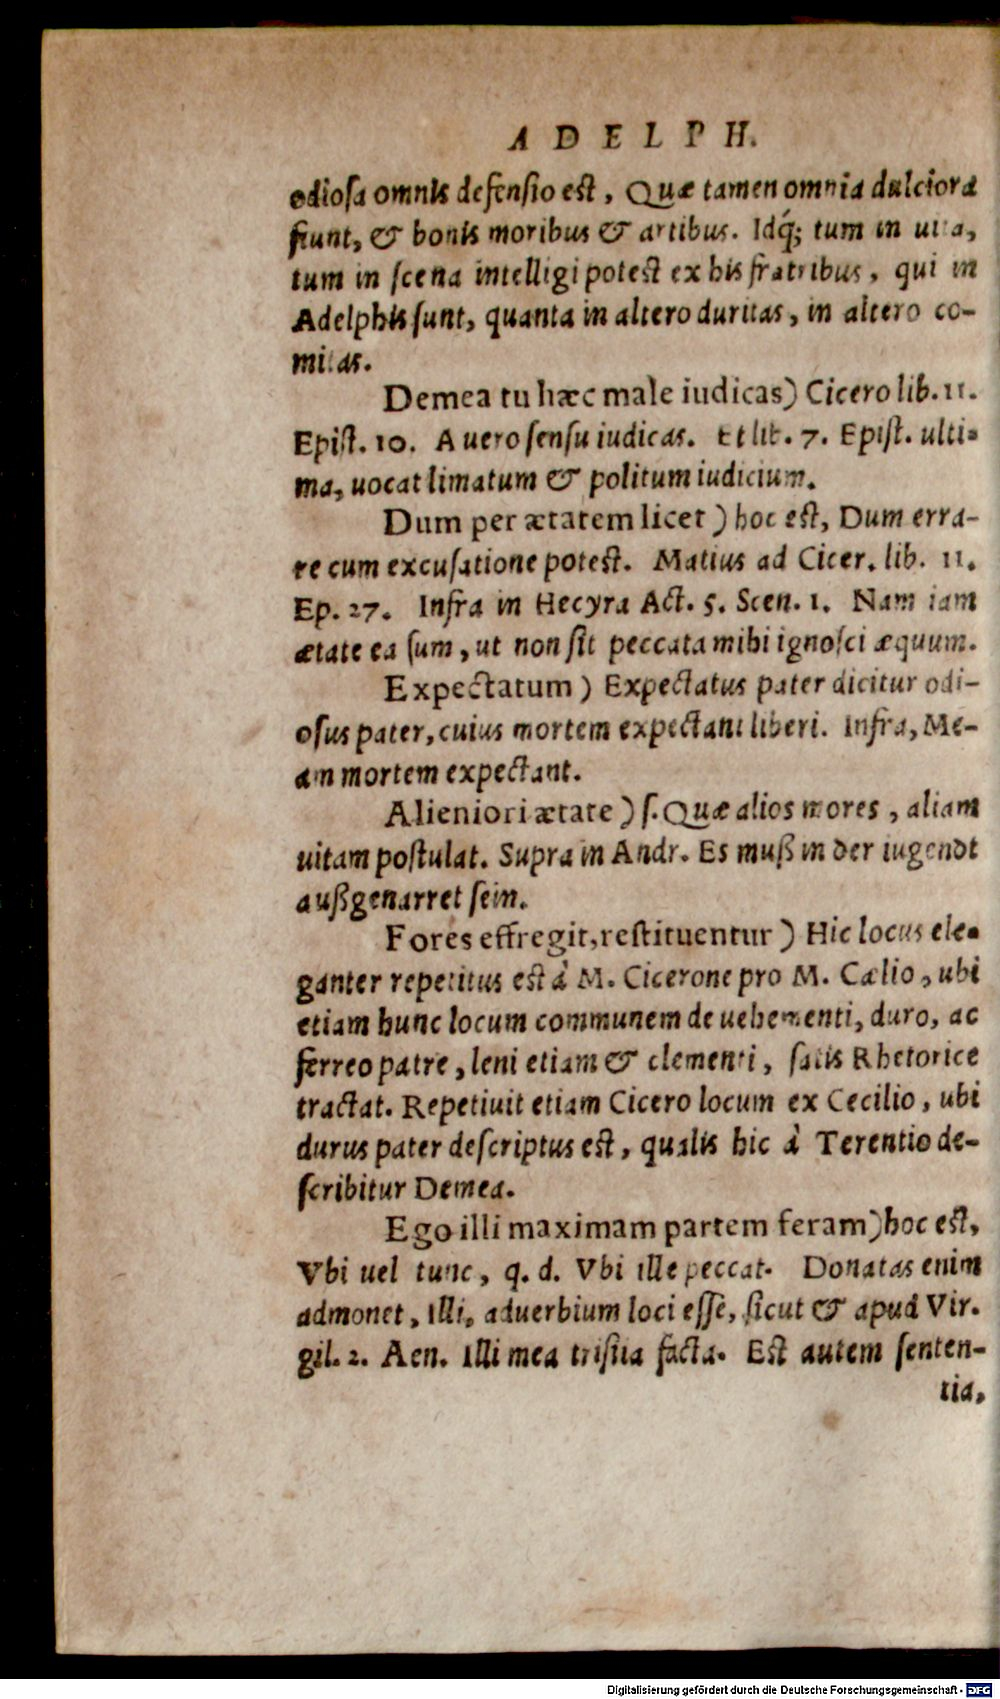 ADELPH.
odiosa omnis defensio est, Quæ tamen omnia dulciora
fiunt, & bonis moribus & artibus. Idq́; tum in uita,
tum in scena intelligi potest ex his fratribus, qui in
Adelphis sunt, quanta in altero duritas, in altero co-
mitas.
Demea tu hæc male iudicas) Cicero lib. 11.
Epist. 10. A uero sensu iudicas. Et lib. 7. Epist. ulti-
ma, uocat limatum & politum iudicium.
Dum per ætatem licet) hoc est, Dum erra-
re cum excusatione potest. Matius ad Cicer. lib. 11.
Ep. 27. Infra in Hecyra Act. 5. Scen. 1. Nam iam
ætate ea sum, ut non sit peccata mihi ignosci æquum.
Expectatum) Expectatus pater dicitur odi-
osus pater, cuius mortem expectant liberi. Infra, Me-
am mortem expectant.
Alieniori ætate) s. Quæ alios mores, aliam
uitam postulat. Supra in Andr. Es muß in der iugendt
außgenarret sein.
Fores effregit, restituentur) Hic locus ele-
ganter repetitus est à M. Cicerone pro M. Cælio, ubi
etiam hunc locum communem de uehementi, duro, ac
ferreo patre, leni etiam & clementi, satis Rhetorice
tractat. Repetiuit etiam Cicero locum ex Cecilio, ubi
durus pater descriptus est, qualis hic à Terentio de-
scribitur Demea.
Ego illi maximam partem feram) hoc est,
Vbi uel tunc, q. d. Vbi ille peccat. Donatas enim
admonet, Illi, aduerbium loci esse, sicut & apud Vir.
gil. 2. Aen. Illi mea tristia facta. Est autem senten-
tia,
Digitalisierung gefördert durch die Deutsche Forschungsgemeinschaft - DFG